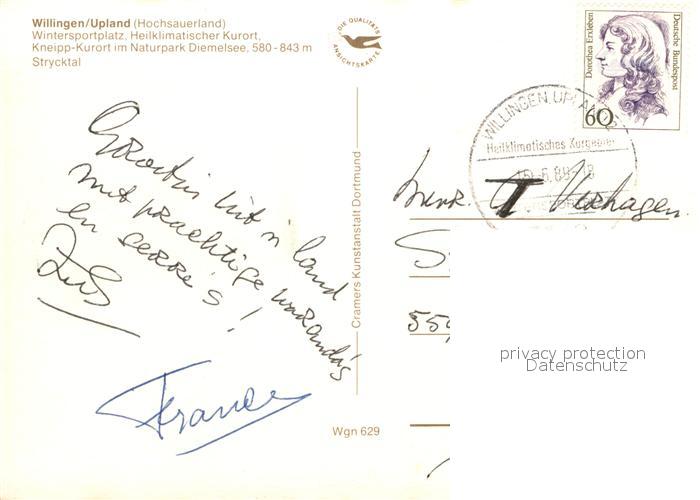 Willingen/Upland (Hochsauerland)
Wintersportplatz, Heilklimatischer Kurort,
Kneipp-Kurort im Naturpark Diemelsee, 580-843 m
Strycktal
DIE QUALITÄTS
ANSICHTSKARTE
Dorothea Erxleben
Deutsche Bundespost
60
WILLINGEN, UPLAND
Heilklimatisches Kurgebiet
uit 'n land
met prachtige waranda's
en serre's!
Zus
France
Mevr. T Verhagen.
S
559
Cramers Kunstanstalt Dortmund
Wgn 629
privacy protection
Datenschutz